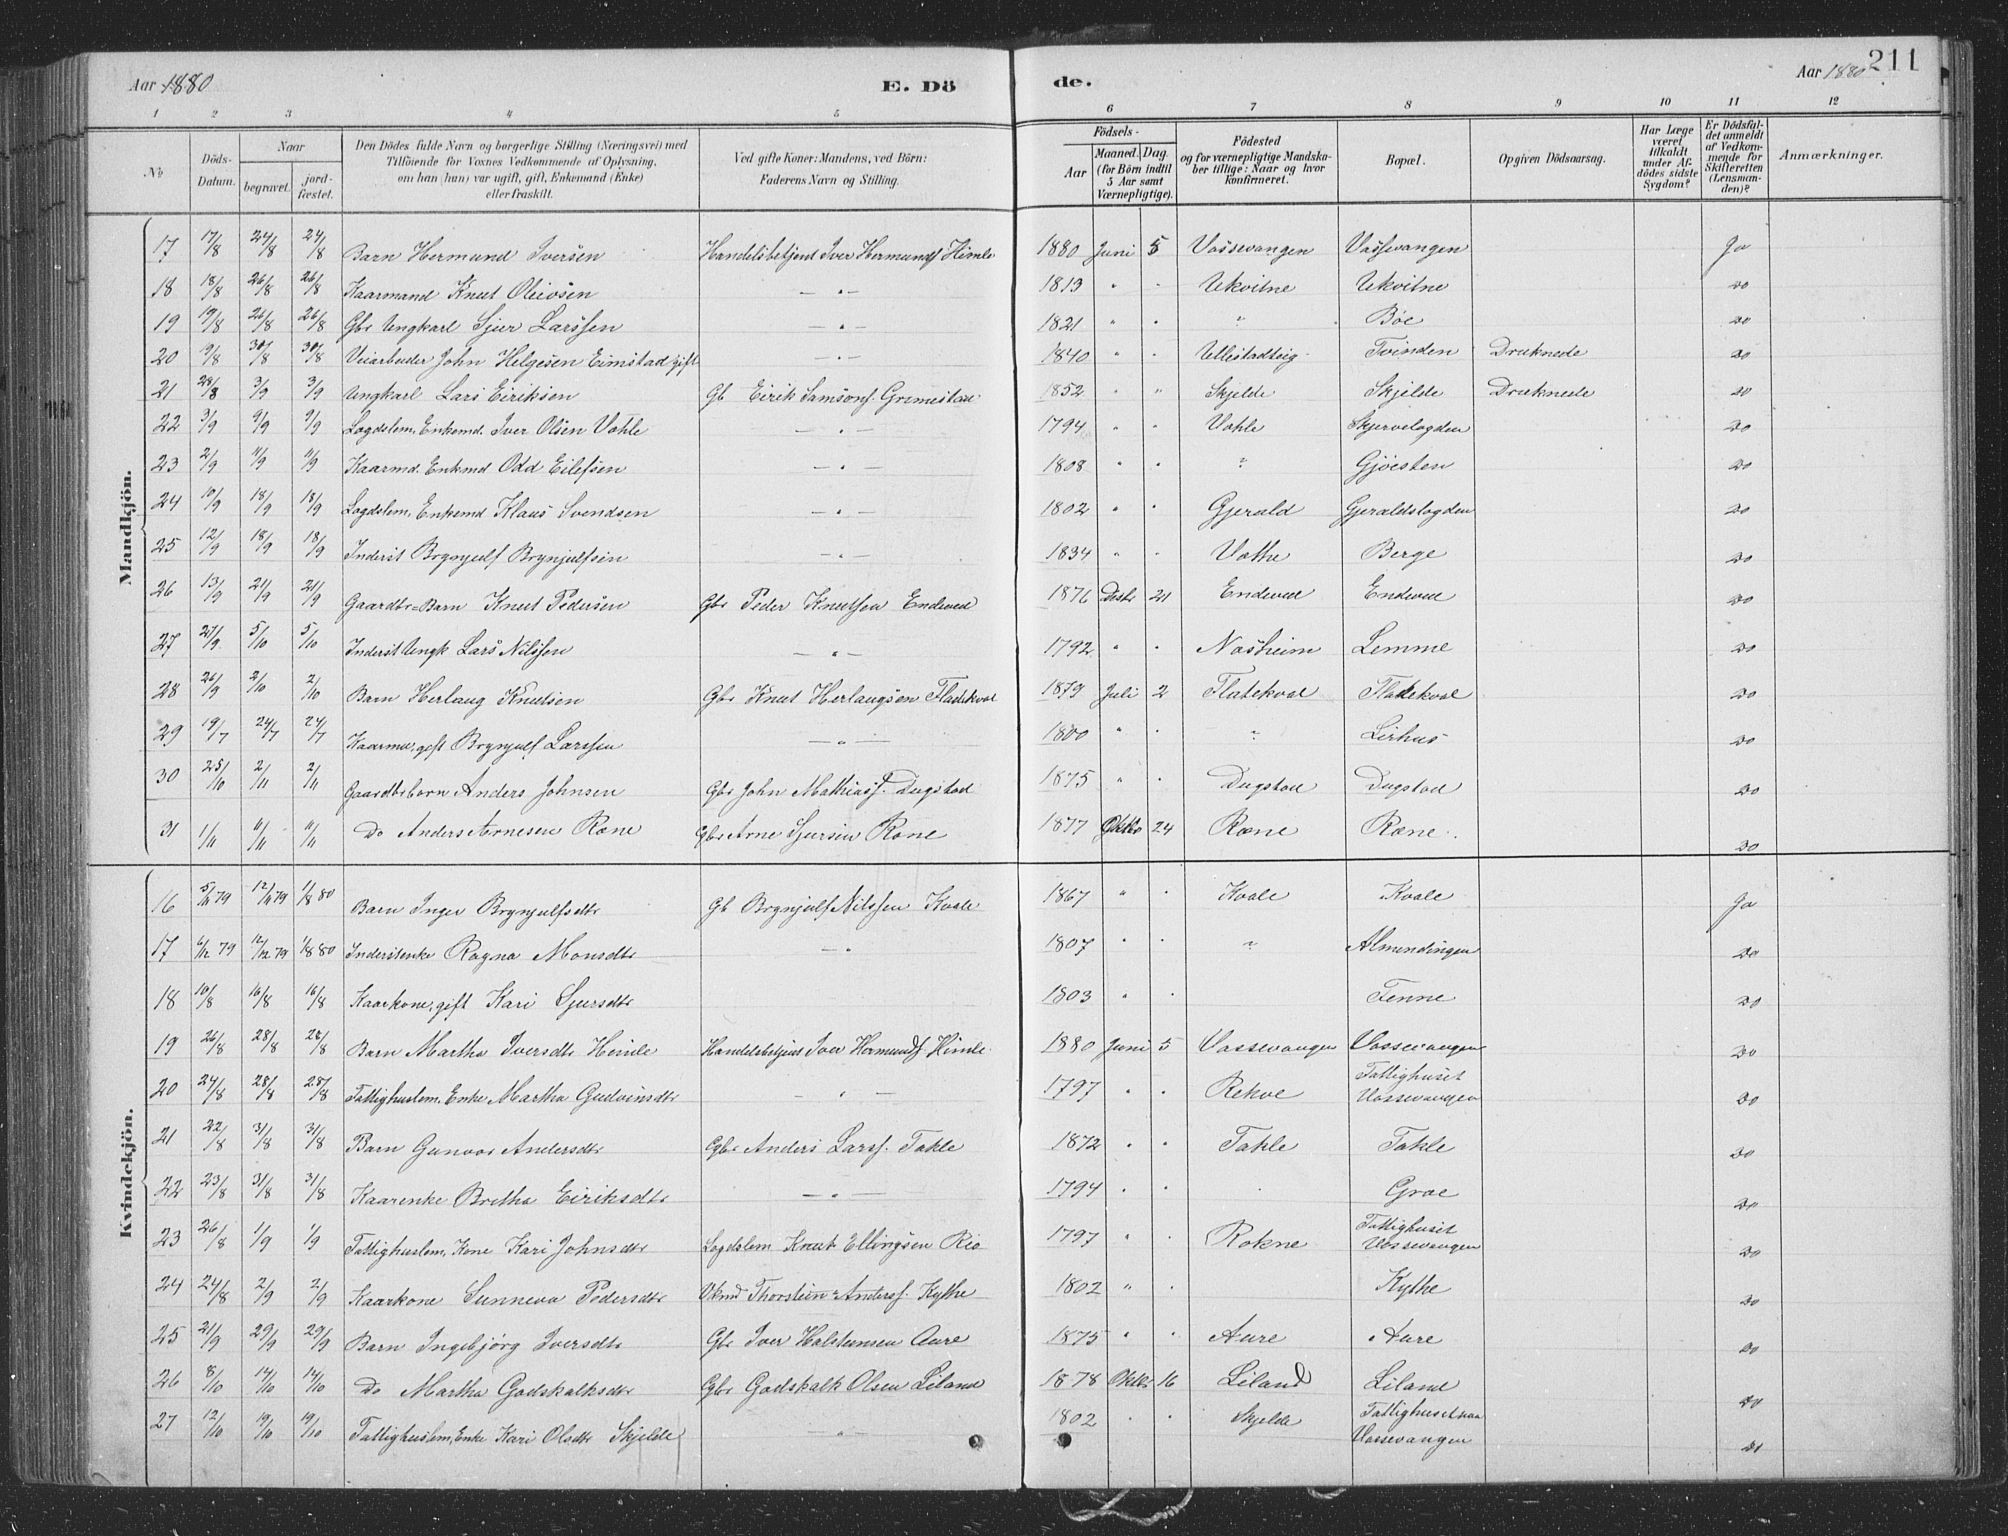 Aar 1880 E. Dö de. Aar 1880 211
1 2 3 4 5 6 7 8 9 10 11 12
No Döds-Datum. Naar begravet. jordfæstet. Den Dödes fulde Navn og borgerlige Stilling (Næringsvei) med Tilföiende for Voxnes Vedkommende af Oplysning, om han (hun) var ugift, gift, Enkemand (Enke) eller fraskilt. Ved gifte Koner: Mandens, ved Börn: Faderens Navn og Stilling. Födsels- Aar Maaned. Dag. (for Börn indtil 5 Aar samt Værnepligtige). Födested og for værnepligtige Mandskaber tillige: Naar og hvor konfirmeret. Bopæl. Opgiven Dödsaarsag. Har Læge været tilkaldt under Afdödes sidste Sygdom? Er Dödsfaldet anmeldt af Vedkommende for Skifteretten (Lensmanden)? Anmærkninger.
Mandkjön.
17 17/8 24/8 24/8 Barn Hermund Iversen Handelsbetjent Iver Hermunds. Himle 1880 Juni 5 Vossevangen Vossevangen Ja
18 18/8 26/8 26/8 Kaarmand Knut Oleivsen — " — 1813 " " Ukvitne Ukvitne Do
19 19/8 26/8 26/8 Gbr Ungkarl Sjur Larssen — " — 1821 " " " Böe Do
20 9/8 30/8 30/8 Veiarbeider John Helgesen Eimstad gift — " — 1840 " " Ullestadteig Tvinden Druknede Do
21 28/8 3/9 3/9 Ungkarl Lars Eiriksen Gb Eirik Samsons. Grimestad 1852 " " Skjelde Skjelde Druknede Do
22 3/9 9/9 9/9 Lagdslem, Enkemd. Iver Olsen Vahle — " — 1794 " " Vahle Skjervelagden Do
23 2/9 11/9 11/9 Kaarmd. Enkmd Odd Eilefsen — " — 1808 " " " Gjöesten Do
24 10/9 18/9 18/9 Lagdslem, Enkemd Klaus Svendsen — " — 1802 " " Gjerald Gjeraldslagden Do
25 12/9 18/9 18/9 Inderst Brynjulf Brynjulfsen — " — 1834 " " Vathe Berge Do
26 13/9 21/9 21/9 Gaardbr-Barn Knut Pedersen Gbr Peder Knutsen Endeved 1876 Decbr 21 Endeved Endeved Do
27 27/9 5/10 5/10 Inderst Ungk Lars Nilssen — " — 1792 " " Nasheim Lemme Do
28 26/9 2/10 2/10 Barn Herlaug Knutsen Gbr Knut Herlaugsen Flatekval 1879 Juli 2 Flatekval Flatekval Do
29 19/7 24/7 24/7 Kaarmd, gift Brynjulf Larssen — " — 1800 " " Lirhus Do
30 25/10 2/11 2/11 Gaardbrbarn Anders Johnsen Gbr John Mathiass. Dugstad 1875 " " Dugstad Dugstad Do
31 1/11 11/11 11/11 Do Anders Arnesen Røne Gbr Arne Sjursen Røne 1877 Oktbr 24 Røne Røne Do
Kvindekjön.
16 5/11 79 12/11 79 1/8 80 Barn Inger Brynjulfsdtr Gb Brynjulf Nilssen Kvale 1867 " " Kvale Kvale Ja
17 6/12 79 12/12 79 1/8 80 Inderstenke Ragna Monsdtr — " 1807 " " " Almendingen Do
18 10/8 16/8 16/8 Kaarkone, gift Kari Sjursdtr 1803 " " Tenne Do
19 26/8 28/8 28/8 Barn Martha Iversdtr Himle Handelsbetjent Iver Hermunds. Himle 1880 Juni 5 Vossevangen Vossevangen Do
20 24/8 28/8 28/8 Fattighuslem, Enke Martha Gudvinsdtr — " — 1797 " " Rekve Fattighuset Vossevangen Do
21 22/8 31/8 31/8 Barn Gunvor Andersdtr Gbr Anders Larss. Takle 1872 " " Takle Takle Do
22 23/8 31/8 31/8 Kaarenke Bretha Eiriksdtr — " — 1794 " " " Groe Do
23 26/8 1/9 1/9 Fattighuslem, Kone Kari Johnsdtr Lagdslem Knut Ellingsen Rio 1797 " " Rokne Fattighuset Vossevangen Do
24 24/8 2/9 2/9 Kaarkone Sunneva Pedersdtr Thorstein Anderss. Kythe 1802 " Kythe Do
25 21/9 29/9 29/9 Barn Ingebjörg Iversdtr Gbr Iver Halstensen Aure 1875 " " Aure Aure Do
26 8/10 14/10 14/10 Do Martha Godskalksdtr Gbr Godskalk Olsen Liland 1878 Oktbr 16 Liland Liland Do
27 12/10 19/10 19/10 Fattighuslem, Enke Kari Olsdtr Skjelde — " — 1802 " " Skjelde Fattighuset paa Vossevangen Do